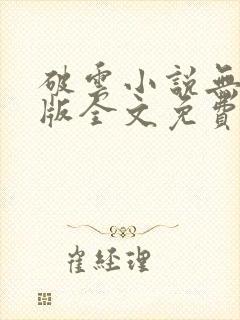 破雲小說無
版全文免費
崔經理